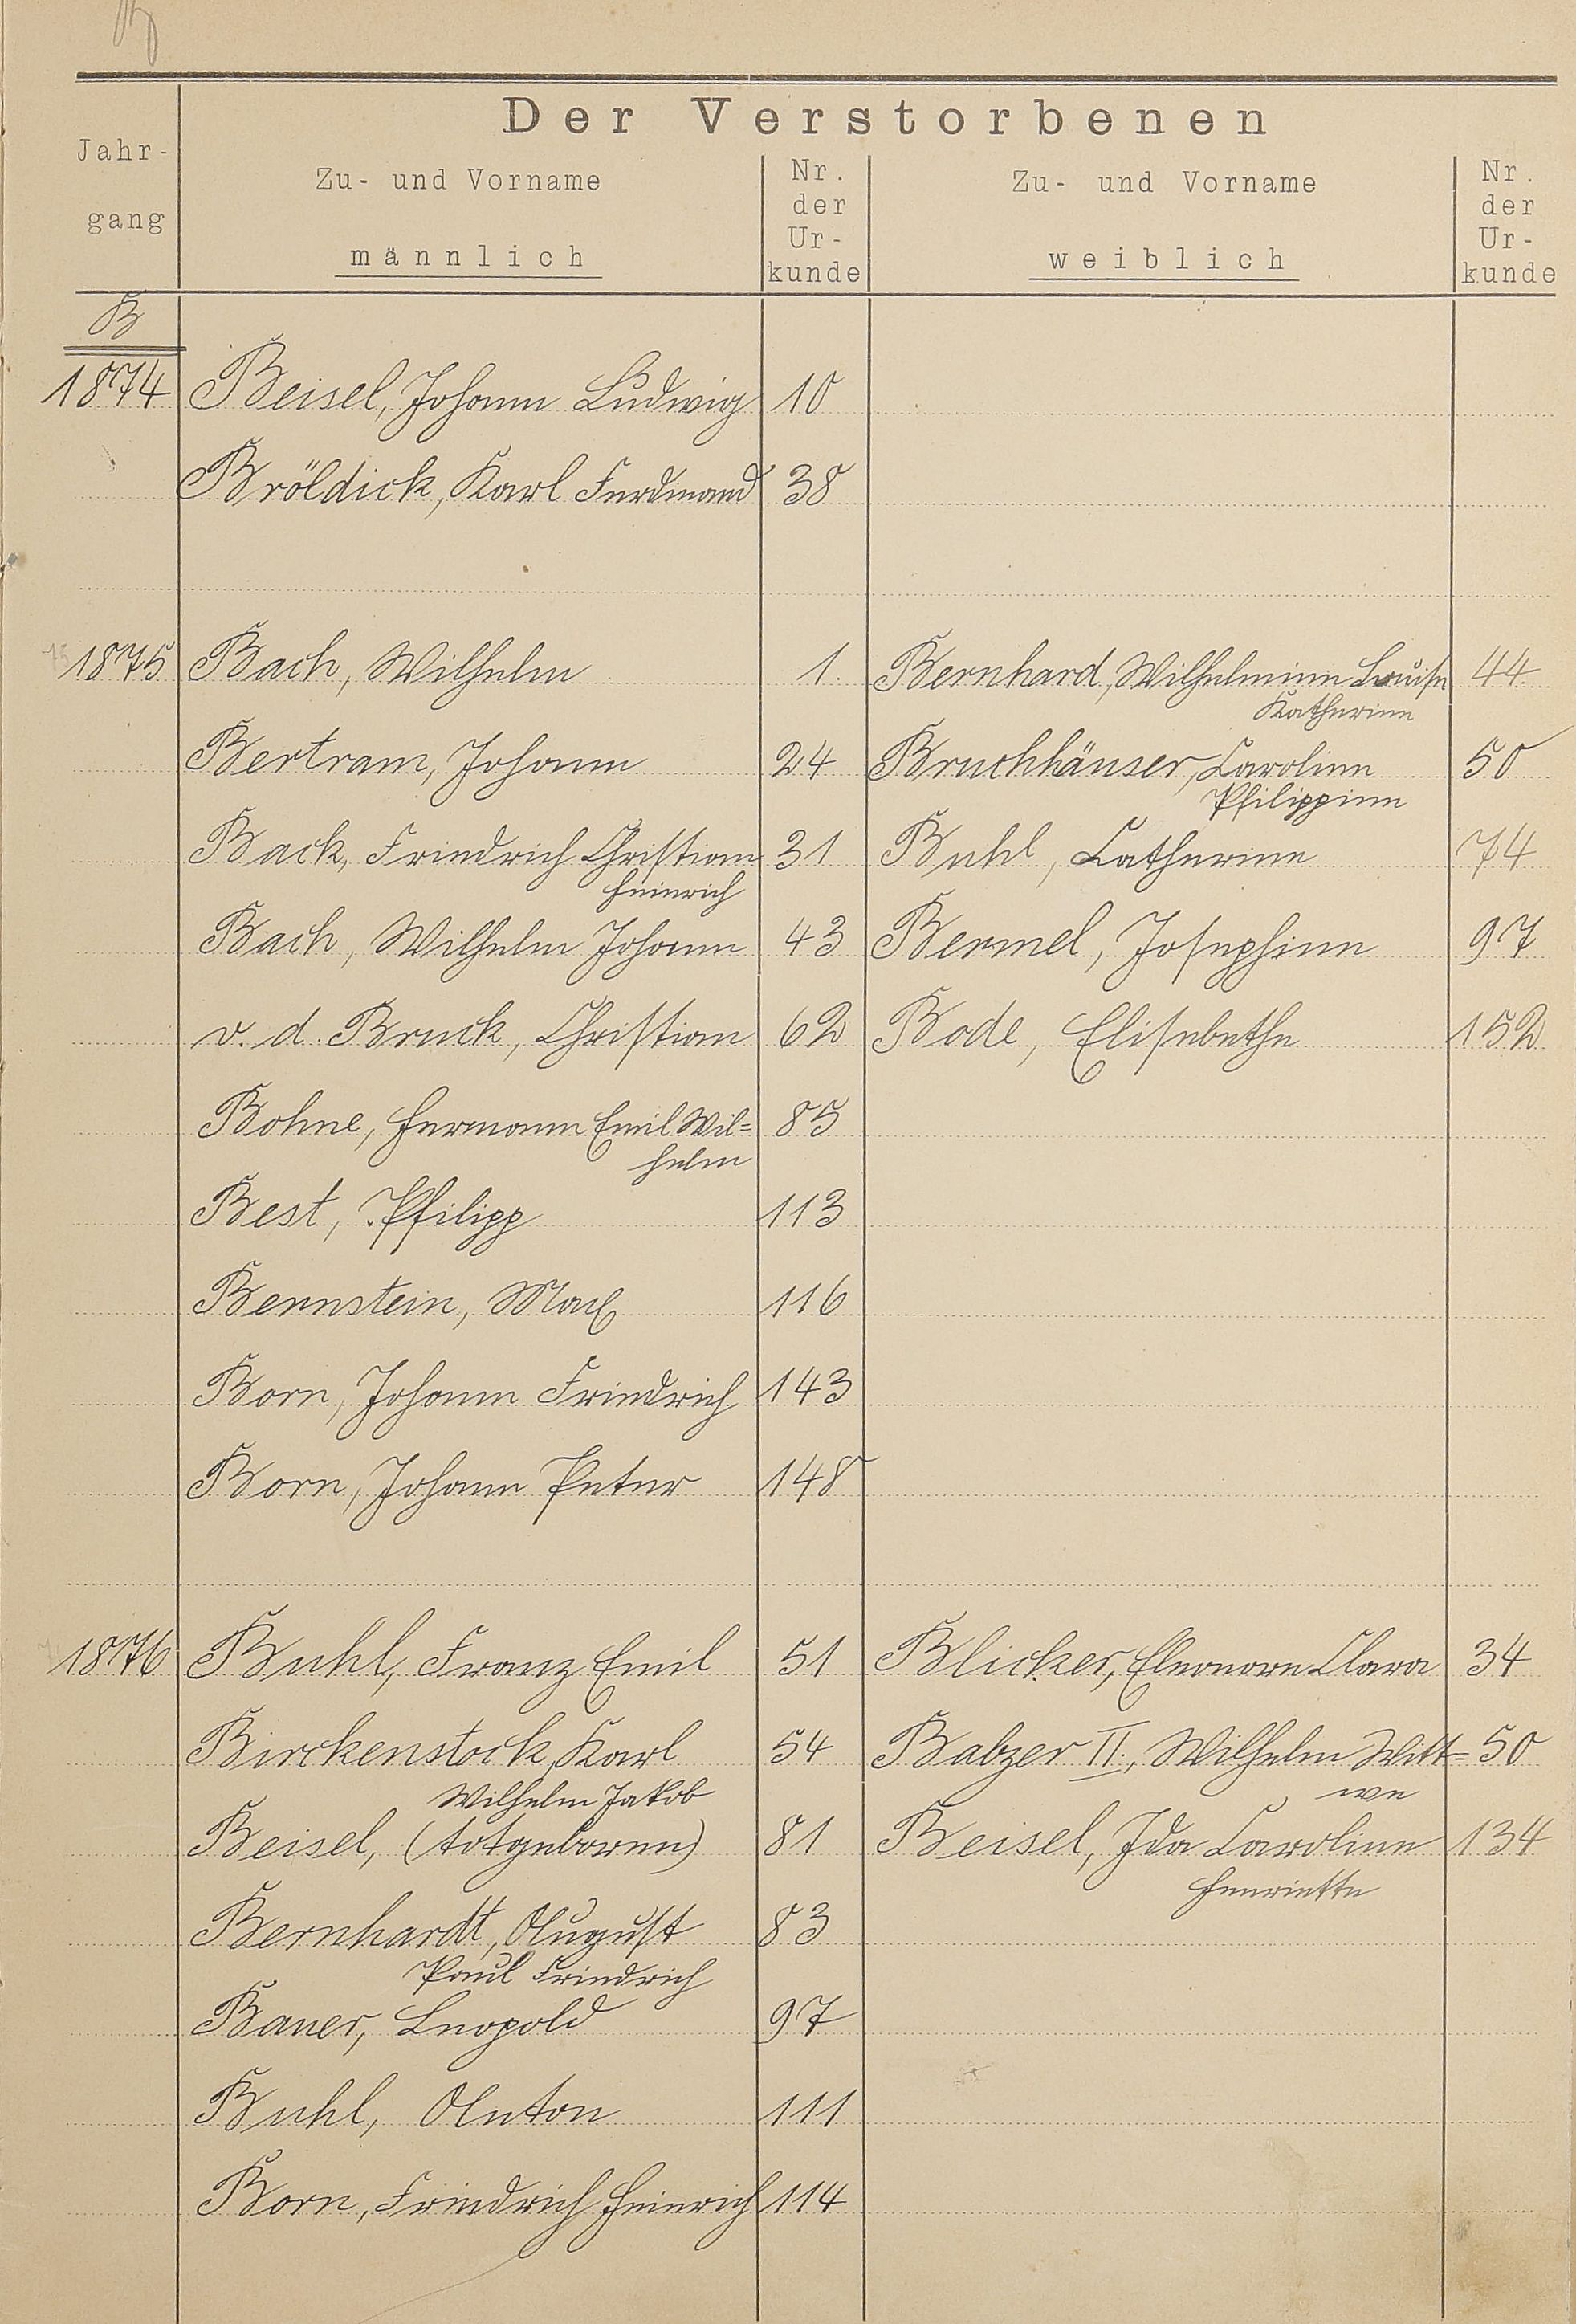 B
Der Verstorbenen
Jahr-
gang
Zu- und Vorname
männlich
Nr.
der
Ur-
kunde
Zu- und Vorname
weiblich
Nr.
der
Ur-
kunde
B
1874 Beisel, Johann Ludwig 10
Bröldick, Karl Ferdinand 38
1875 Bach, Wilhelm 1. Bernhard, Wilhelmine Louise 44
Katherine
Bertram, Johann 24 Bruchhäuser, Caroline 50
Philippine
Back, Friedrich Christian 31 Buhl, Catherine 74
Heinrich
Bach, Wilhelm Johann 43 Bermel, Josephine 97
v. d. Bruck, Christian 62 Bode, Elisebethe 152
Bohne, Hermann Emil Wil= 85
helm
Best, Philipp 113
Bernstein, Max 116
Born, Johann Friedrich 143
Born, Johann Peter 148
1876 Buhl, Franz Emil 51 Blicker, Eleonore Clara 34
Birckenstock, Karl 54 Babzer II., Wilhelm Witt= 50
Wilhelm Jakob we
Beisel, (totgeboren) 81 Beisel, Ida Caroline 134
Henriette
Bernhardt, August 83
Paul Friedrich
Bauer, Leopold 97
Buhl, Anton 111
Born, Friedrich Heinrich 114